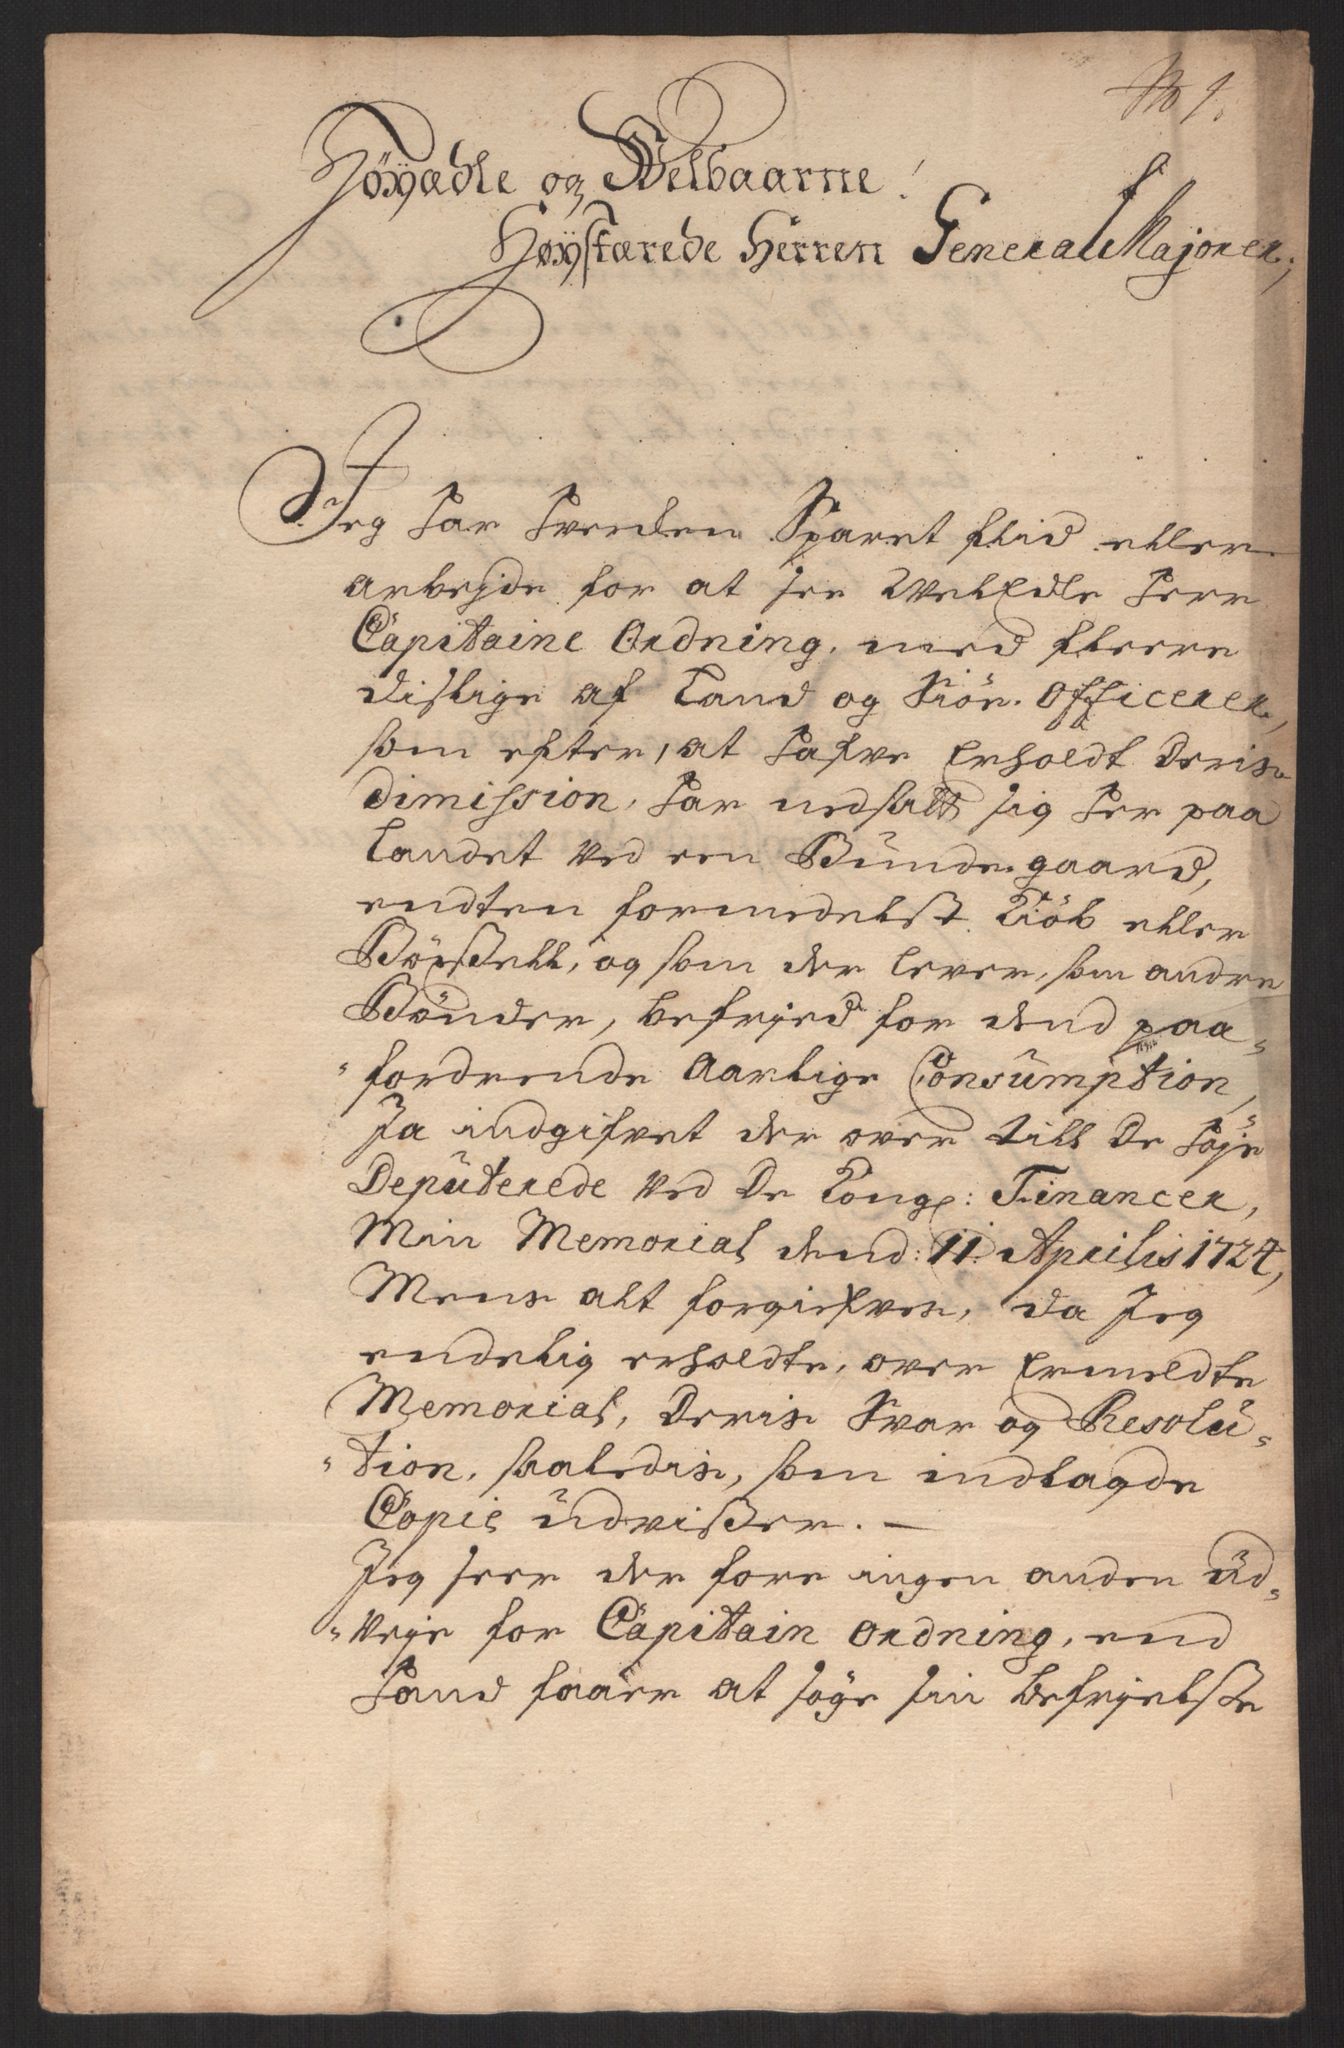 No 1.
Höÿædle og Welbaarne!
Høÿstærede Herren General Majorer,
Jeg har hverken Sparet flid eller
arbejde for at see WelEdle Herr
Capitaine Ordning, med fleere
dislige af Land og Siöe. Officerer,
som efter, at hafve Erholdt deris
dimission, har nedsatt sig her paa
Landet ved een Bunde gaard,
endten formedelst Kiöb eller
Böxsell, og som der lever, som andre
Bönder, befrjed for dend paa-
fordrende Aarlige Consumption,
Ja indgifvet der over till De Höje
Deputerede ved De Kongl: Financer,
Min Memorial dend: 11. Aprilis 1724,
Mens alt forgiefves, da Jeg
endelig erholdte, over Ermeldte
Memorial, Deris Svar og Resolu-
tion, saaledis, som indlagde
Copie udvißer. —
Jeg seer der fore ingen anden ud-
veje for Capitain Ordning, end
Hand faaer at söge sin befrjelße